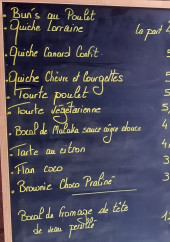 • Bun's au Poulet
• Quiche Lorraine la part
• Quiche Canard Confit
• Quiche Chèvre et Courgettes
• Tourte poulet
• Tourte végétarienne
• Bocal de sauce aigre douce
• Tarte au citron
• Flan coco
• Brownie Choco Praliné
Bocal de fromage de tête
de veau persillé